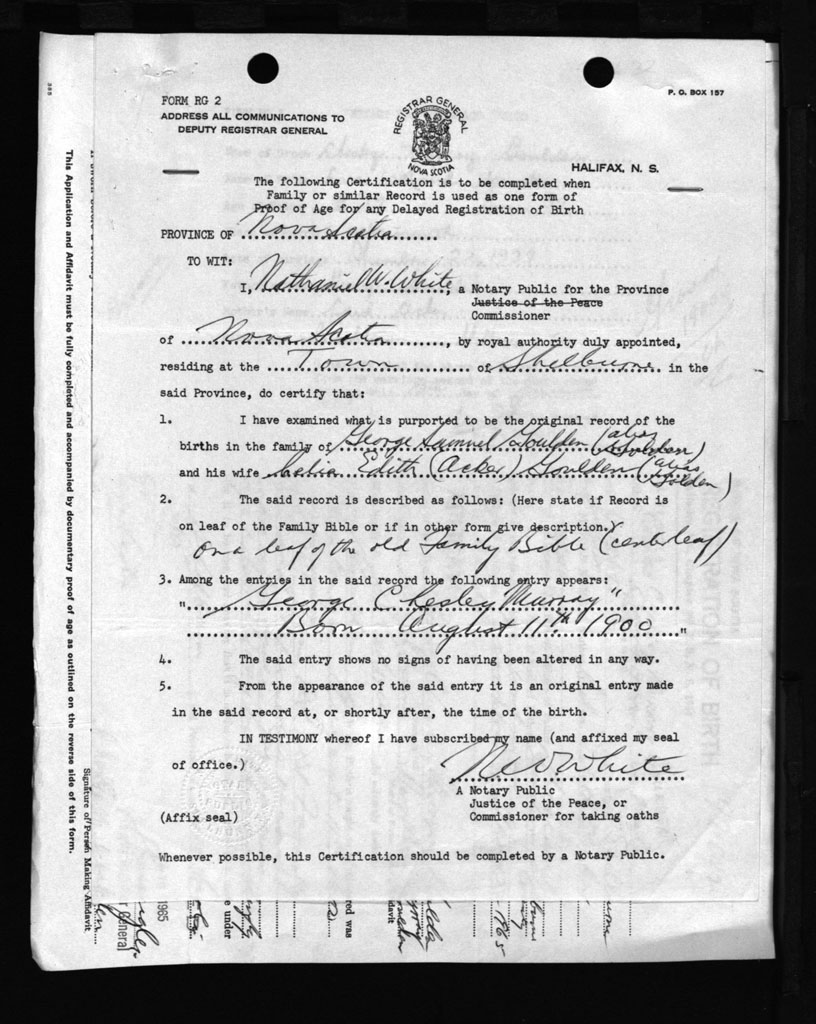 FORM RG 2
P. O. BOX 157
ADDRESS ALL COMMUNICATIONS TO
DEPUTY REGISTRAR GENERAL
REGISTRAR GENERAL
NOVA SCOTIA
HALIFAX, N. S.
The following Certification is to be completed when
Family or similar Record is used as one form of
Proof of Age for any Delayed Registration of Birth
PROVINCE OF Nova Scotia
TO WIT:
I, Nathaniel W. White, a Notary Public for the Province
Justice of the Peace
Commissioner
of Nova Scotia, by royal authority duly appointed,
residing at the Town of Shelburne in the
said Province, do certify that:
1. I have examined what is purported to be the original record of the
births in the family of George Samuel Goulden (alias Golden)
and his wife Edith (Acker) Goulden (alias Golden)
2. The said record is described as follows: (Here state if Record is
on leaf of the Family Bible or if in other form give description.)
On a leaf of the old Family Bible (center leaf)
3. Among the entries in the said record the following entry appears:
"George Chesley Murray"
Born August 11th 1900"
4. The said entry shows no signs of having been altered in any way.
5. From the appearance of the said entry it is an original entry made
in the said record at, or shortly after, the time of the birth.
IN TESTIMONY whereof I have subscribed my name (and affixed my seal
of office.)
N W White
A Notary Public
Justice of the Peace, or
Commissioner for taking oaths
(Affix seal)
Whenever possible, this Certification should be completed by a Notary Public.
This Application and Affidavit must be fully completed and accompanied by documentary proof of age as outlined on the reverse side of this form.
Signature of Person Making Affidavit
r General
1965
e under
red was
davit
1965